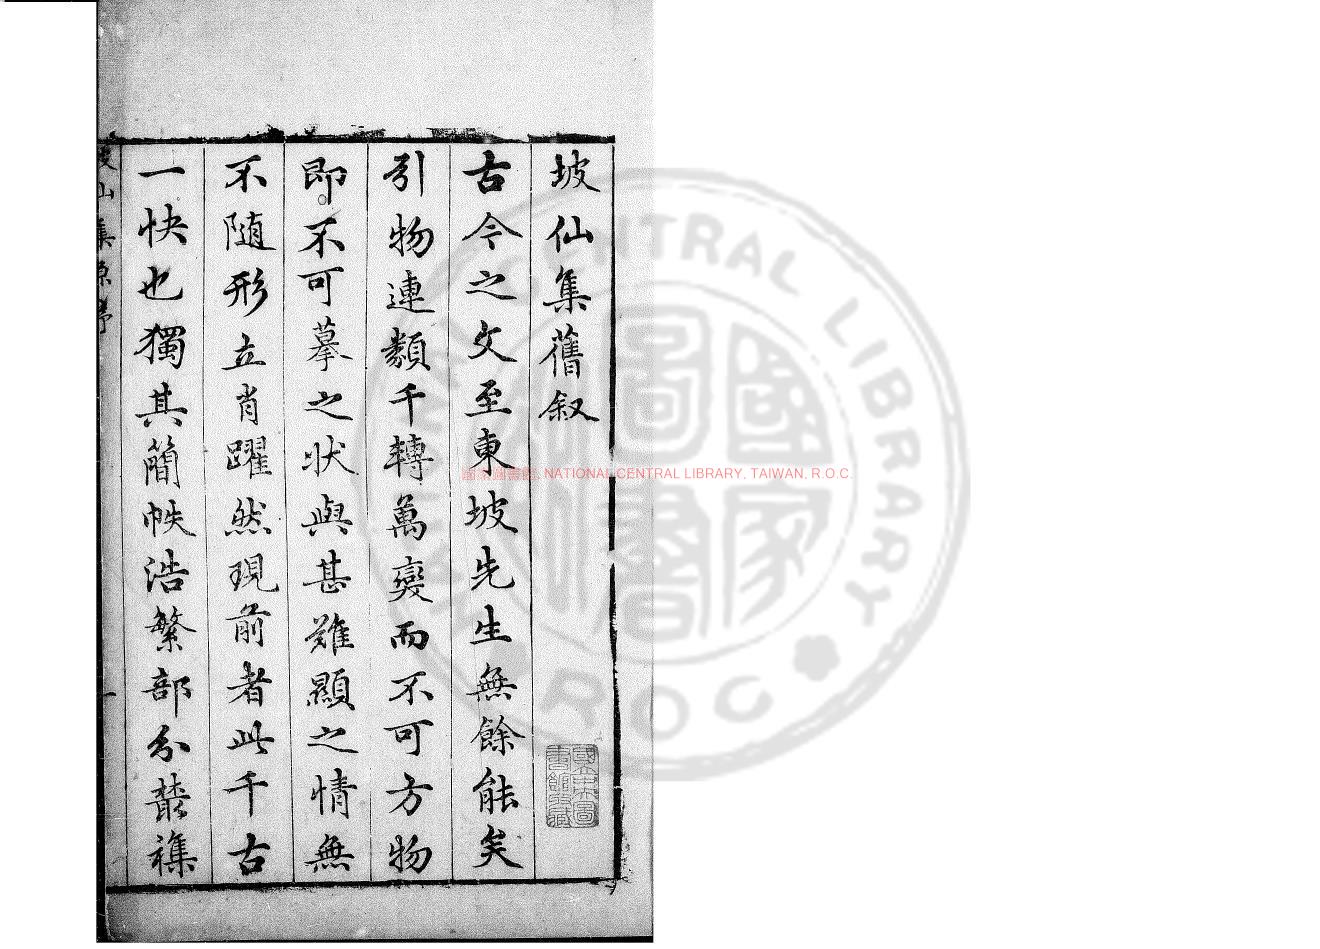 坡仙集舊叙
古今之文至東坡先生無餘能矣
引物連類千轉萬變而不可方物
即不可摹之狀與甚難顯之情無
不隨形立肖躍然現前者此千古
一快也獨其簡帙浩繁部分叢襍
坡仙集原序
一
國家圖書館, NATIONAL CENTRAL LIBRARY, TAIWAN, R.O.C.
國立中央圖書館收藏
NATIONAL CENTRAL LIBRARY
ROC
國家圖書